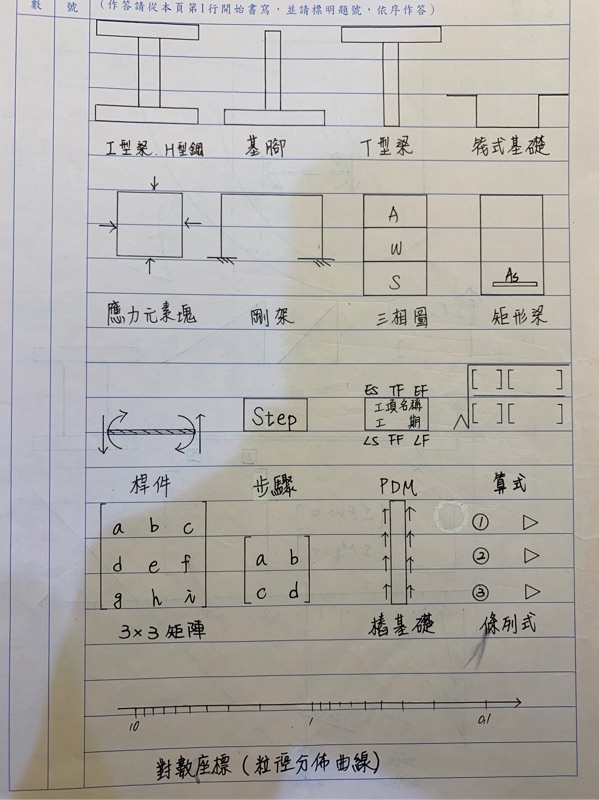 數 號 (作答請從本頁第1行開始書寫,並請標明題號,依序作答)
工型梁、H型鋼 基腳 T型梁 筏式基礎
A
W
S
As
應力元素塊 剛架 三相圖 矩形梁
ES TF EF
工項名稱
工 期
LS FF LF
Step
[ ][ ]
[ ][ ]
桿件 步驟 PDM 算式
a b c
d e f
g h i
a b
c d
① ▷
② ▷
③ ▷
3×3 矩陣 樁基礎 條列式
10 1 0.1
對數座標(粒徑分佈曲線)